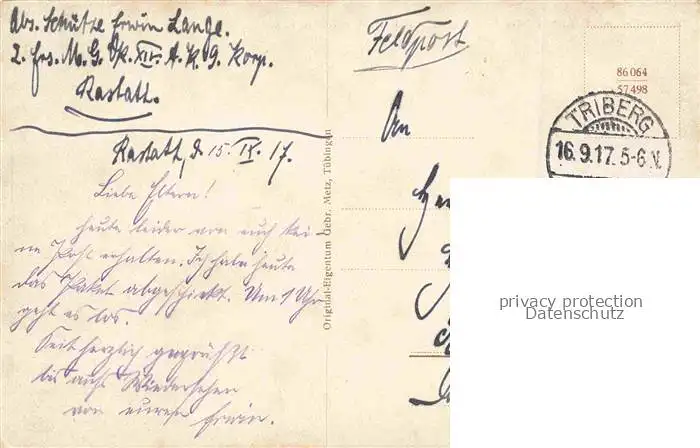 Abs. Schütze Erwin Lange.
2. Ers. M. G. K. XIV. A. K. 9. Korp.
Rastatt.
Rastatt, d 15. IX. 17.
Liebe Eltern!
heute leider von euch kei-
ne Post erhalten. Ich habe heute
das Paket abgeschickt. Um 1 Uhr
geht es los.
Seit herzlich gegrüßt
bis aufs Wiedersehen
von eurem Erwin.
Original-Eigentum Gebr. Metz, Tübingen
Feldpost
An
86 064
57 498
TRIBERG
16.9.17.5-6 V.
privacy protection
Datenschutz